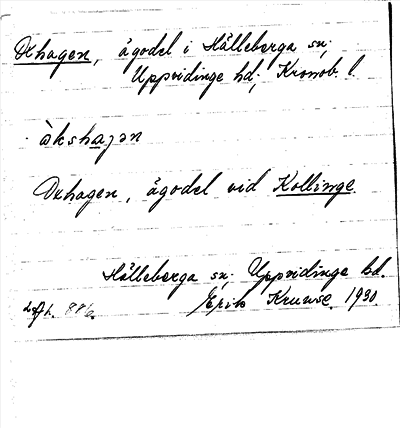 Oxhagen, ägodel i Hälleberga sn,
Uppvidinge hd, Kronob. l.
àkshaȷən
Oxhagen, ägodel vid Kollinge
Hälleberga sn, Uppvidinge hd.
Erik Kruuse. 1930.
886.